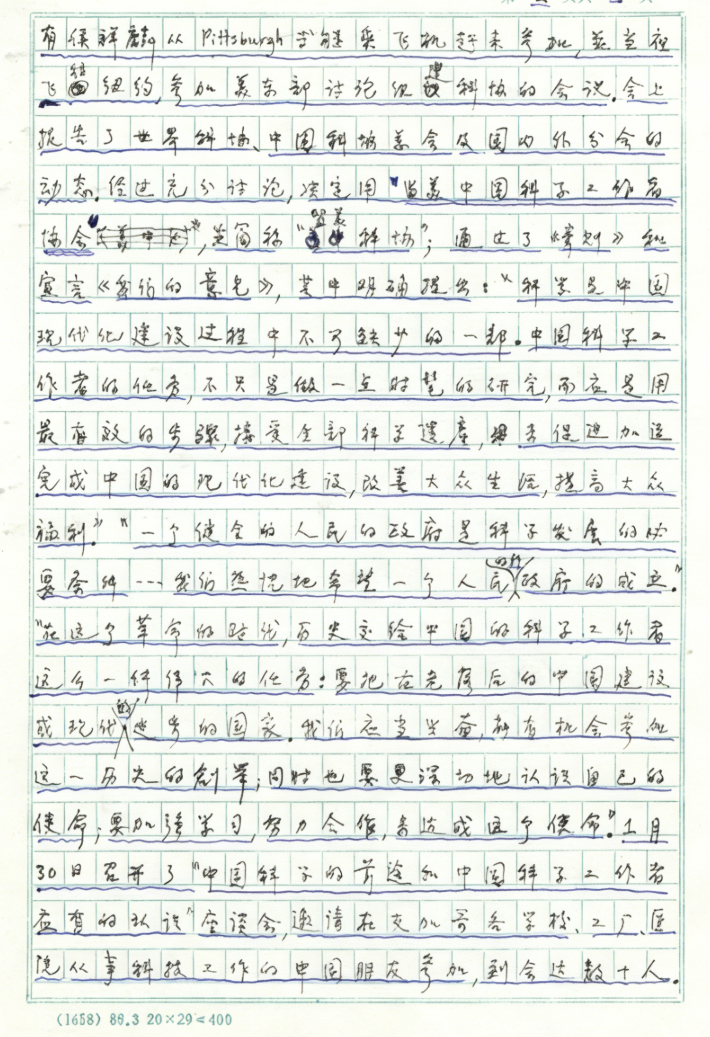 有侯祥麟从 Pittsburgh 当晚乘飞机赶来参加,并当夜
飞纽约,参加美东部讨论组建科协的会议.会上
报告了世界科协、中国科协总会及国内外分会的
动态.经过充分讨论,决定用"留美中国科学工作者
协会",并简称"留美科协";通过了《章则》和
宣言《我们的意见》,其中明确提出:"科学是中国
现代化建设过程中不可缺少的一部.中国科学工
作者的任务,不只是做一点时髦的研究,而应是用
最有效的步骤,接受全部科学遗产,来促进加速
完成中国的现代化建设,改善大众生活,提高大众
福利.""一个健全的人民的政府是科学发展的必
要条件……我们热忱地希望一个人民的政府的成立."
"在这个革命的时代,历史交给中国的科学工作者
这么一件伟大的任务:要把古老落后的中国建设
成现代进步的国家.我们应当兴奋,都有机会参加
这一历史的创举;同时也要更深切地认识自己的
使命;要加强学习,努力合作,来达成这个使命."1月
30日召开了"中国科学的前途和中国科学工作者
应有的认识"座谈会,邀请在芝加哥各学校、工厂、医
院从事科技工作的中国朋友参加,到会达数十人.
(1658) 88.3 20×29=400